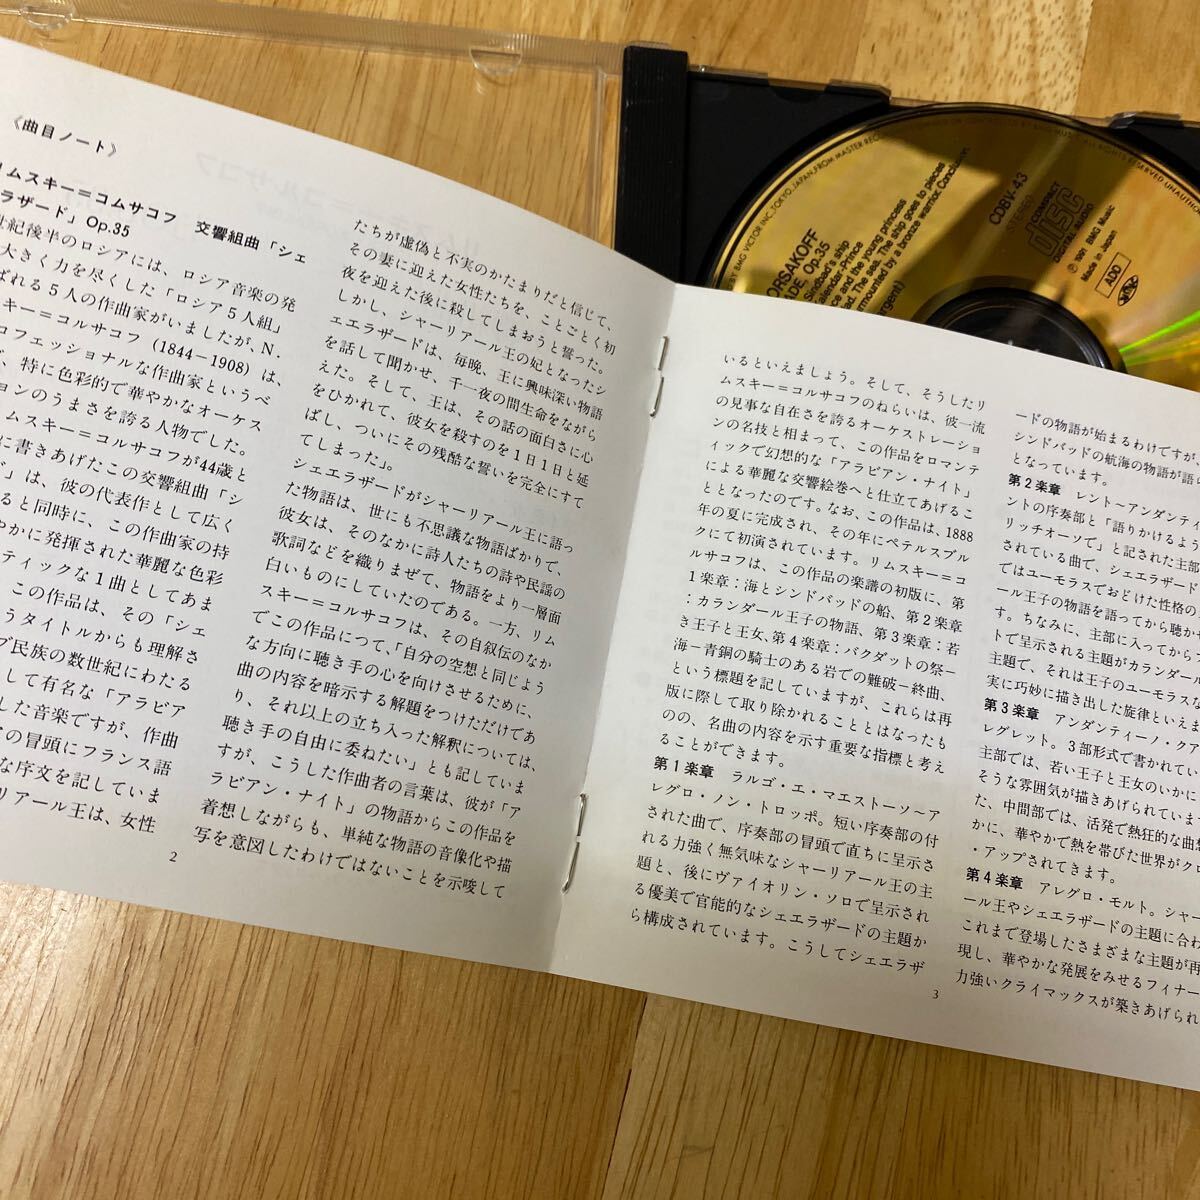 《曲目ノート》
リムスキー＝コムサコフ 交響組曲「シェ
エラザード」Op.35
世紀後半のロシアには、ロシア音楽の発
大きく力を尽くした「ロシア５人組」
ばれる５人の作曲家がいましたが、N．
キー＝コルサコフ（1844－1908）は、
ロフェッショナルな作曲家というべ
、特に色彩的で華やかなオーケス
ションのうまさを誇る人物でした。
ムスキー＝コルサコフが44歳と
に書きあげたこの交響組曲「シ
」は、彼の代表作として広く
ると同時に、この作曲家の持
やかに発揮された華麗な色彩
ティックな１曲としてあま
この作品は、その「シェ
うタイトルからも理解さ
ブ民族の数世紀にわたる
して有名な「アラビア
した音楽ですが、作曲
の冒頭にフランス語
な序文を記していま
リアール王は、女性
2
たちが虚偽と不実のかたまりだと信じて、
その妻に迎えた女性たちを、ことごとく初
夜を迎えた後に殺してしまおうと誓った。
しかし、シャーリアール王の妃となったシ
ェエラザードは、毎晩、王に興味深い物語
を話して聞かせ、千一夜の間生命をながら
えた。そして、王は、その話の面白さに心
をひかれて、彼女を殺すのを１日１日と延
ばし、ついにその残酷な誓いを完全にすて
てしまった」。
シェエラザードがシャーリアール王に語っ
た物語は、世にも不思議な物語ばかりで、
彼女は、そのなかに詩人たちの詩や民謡の
歌詞などを織りまぜて、物語をより一層面
白いものにしていたのである。一方、リム
スキー＝コルサコフは、その自叙伝のなか
でこの作品につて、「自分の空想と同じよう
な方向に聴き手の心を向けさせるために、
曲の内容を暗示する解題をつけただけであ
り、それ以上の立ち入った解釈については、
聴き手の自由に委ねたい」とも記していま
すが、こうした作曲者の言葉は、彼が「ア
ラビアン・ナイト」の物語からこの作品を
着想しながらも、単純な物語の音像化や描
写を意図したわけではないことを示唆して
いるといえましょう。そして、そうしたリ
ムスキー＝コルサコフのねらいは、彼一流
の見事な自在さを誇るオーケストレーショ
ンの名技と相まって、この作品をロマンテ
ィックで幻想的な「アラビアン・ナイト」
による華麗な交響絵巻へと仕立てあげるこ
ととなったのです。なお、この作品は、1888
年の夏に完成され、その年にペテルスブル
クにて初演されています。リムスキー＝コ
ルサコフは、この作品の楽譜の初版に、第
１楽章：海とシンドバッドの船、第２楽章
：カランダール王子の物語、第３楽章：若
き王子と王女、第４楽章：バクダットの祭－
海－青銅の騎士のある岩での難破－終曲、
という標題を記していますが、これらは再
版に際して取り除かれることとはなったも
のの、名曲の内容を示す重要な指標と考え
ることができます。
第１楽章 ラルゴ・エ・マエストーソ～ア
レグロ・ノン・トロッポ。短い序奏部の付
された曲で、序奏部の冒頭で直ちに呈示さ
れる力強く無気味なシャーリアール王の主
題と、後にヴァイオリン・ソロで呈示され
る優美で官能的なシェエラザードの主題か
ら構成されています。こうしてシェエラザ
3
ードの物語が始まるわけですが、
シンドバッドの航海の物語が語ら
となっています。
第２楽章 レント～アンダンティ
ントの序奏部と「語りかけるよう
リッチオーソで」と記された主部
されている曲で、シェエラザード
ではユーモラスでおどけた性格の
ール王子の物語を語ってから聴か
す。ちなみに、主部に入ってからフ
トで呈示される主題がカランダール
主題で、それは王子のユーモラスな
実に巧妙に描き出した旋律といえま
第３楽章 アンダンティーノ・クア
レグレット。３部形式で書かれてい
主部では、若い王子と王女のいかに
そうな雰囲気が描きあげられています
た、中間部では、活発で熱狂的な曲想
かに、華やかで熱を帯びた世界がクロ
・アップされてきます。
第４楽章 アレグロ・モルト。シャー
ール王やシェエラザードの主題に合わ
これまで登場したさまざまな主題が再
現し、華やかな発展をみせるフィナー
力強いクライマックスが築きあげられ
BY BMG VICTOR INC., TOKYO, JAPAN, FROM MASTER-REC
BMG MUSIC, ALL RIGHTS RESERVED. UNAUTHO
CDBV-43
STEREO
COMPACT
disc
DIGITAL AUDIO
℗ 1991 BMG Music
Made in Japan
ADD
ORSAKOFF
ADE, Op.35
Sindbad's ship
Kalendar Prince
nce and the young princess
ad. The sea. The ship goes to pieces
mounted by a bronze warrior. Conclusion.
rgent)